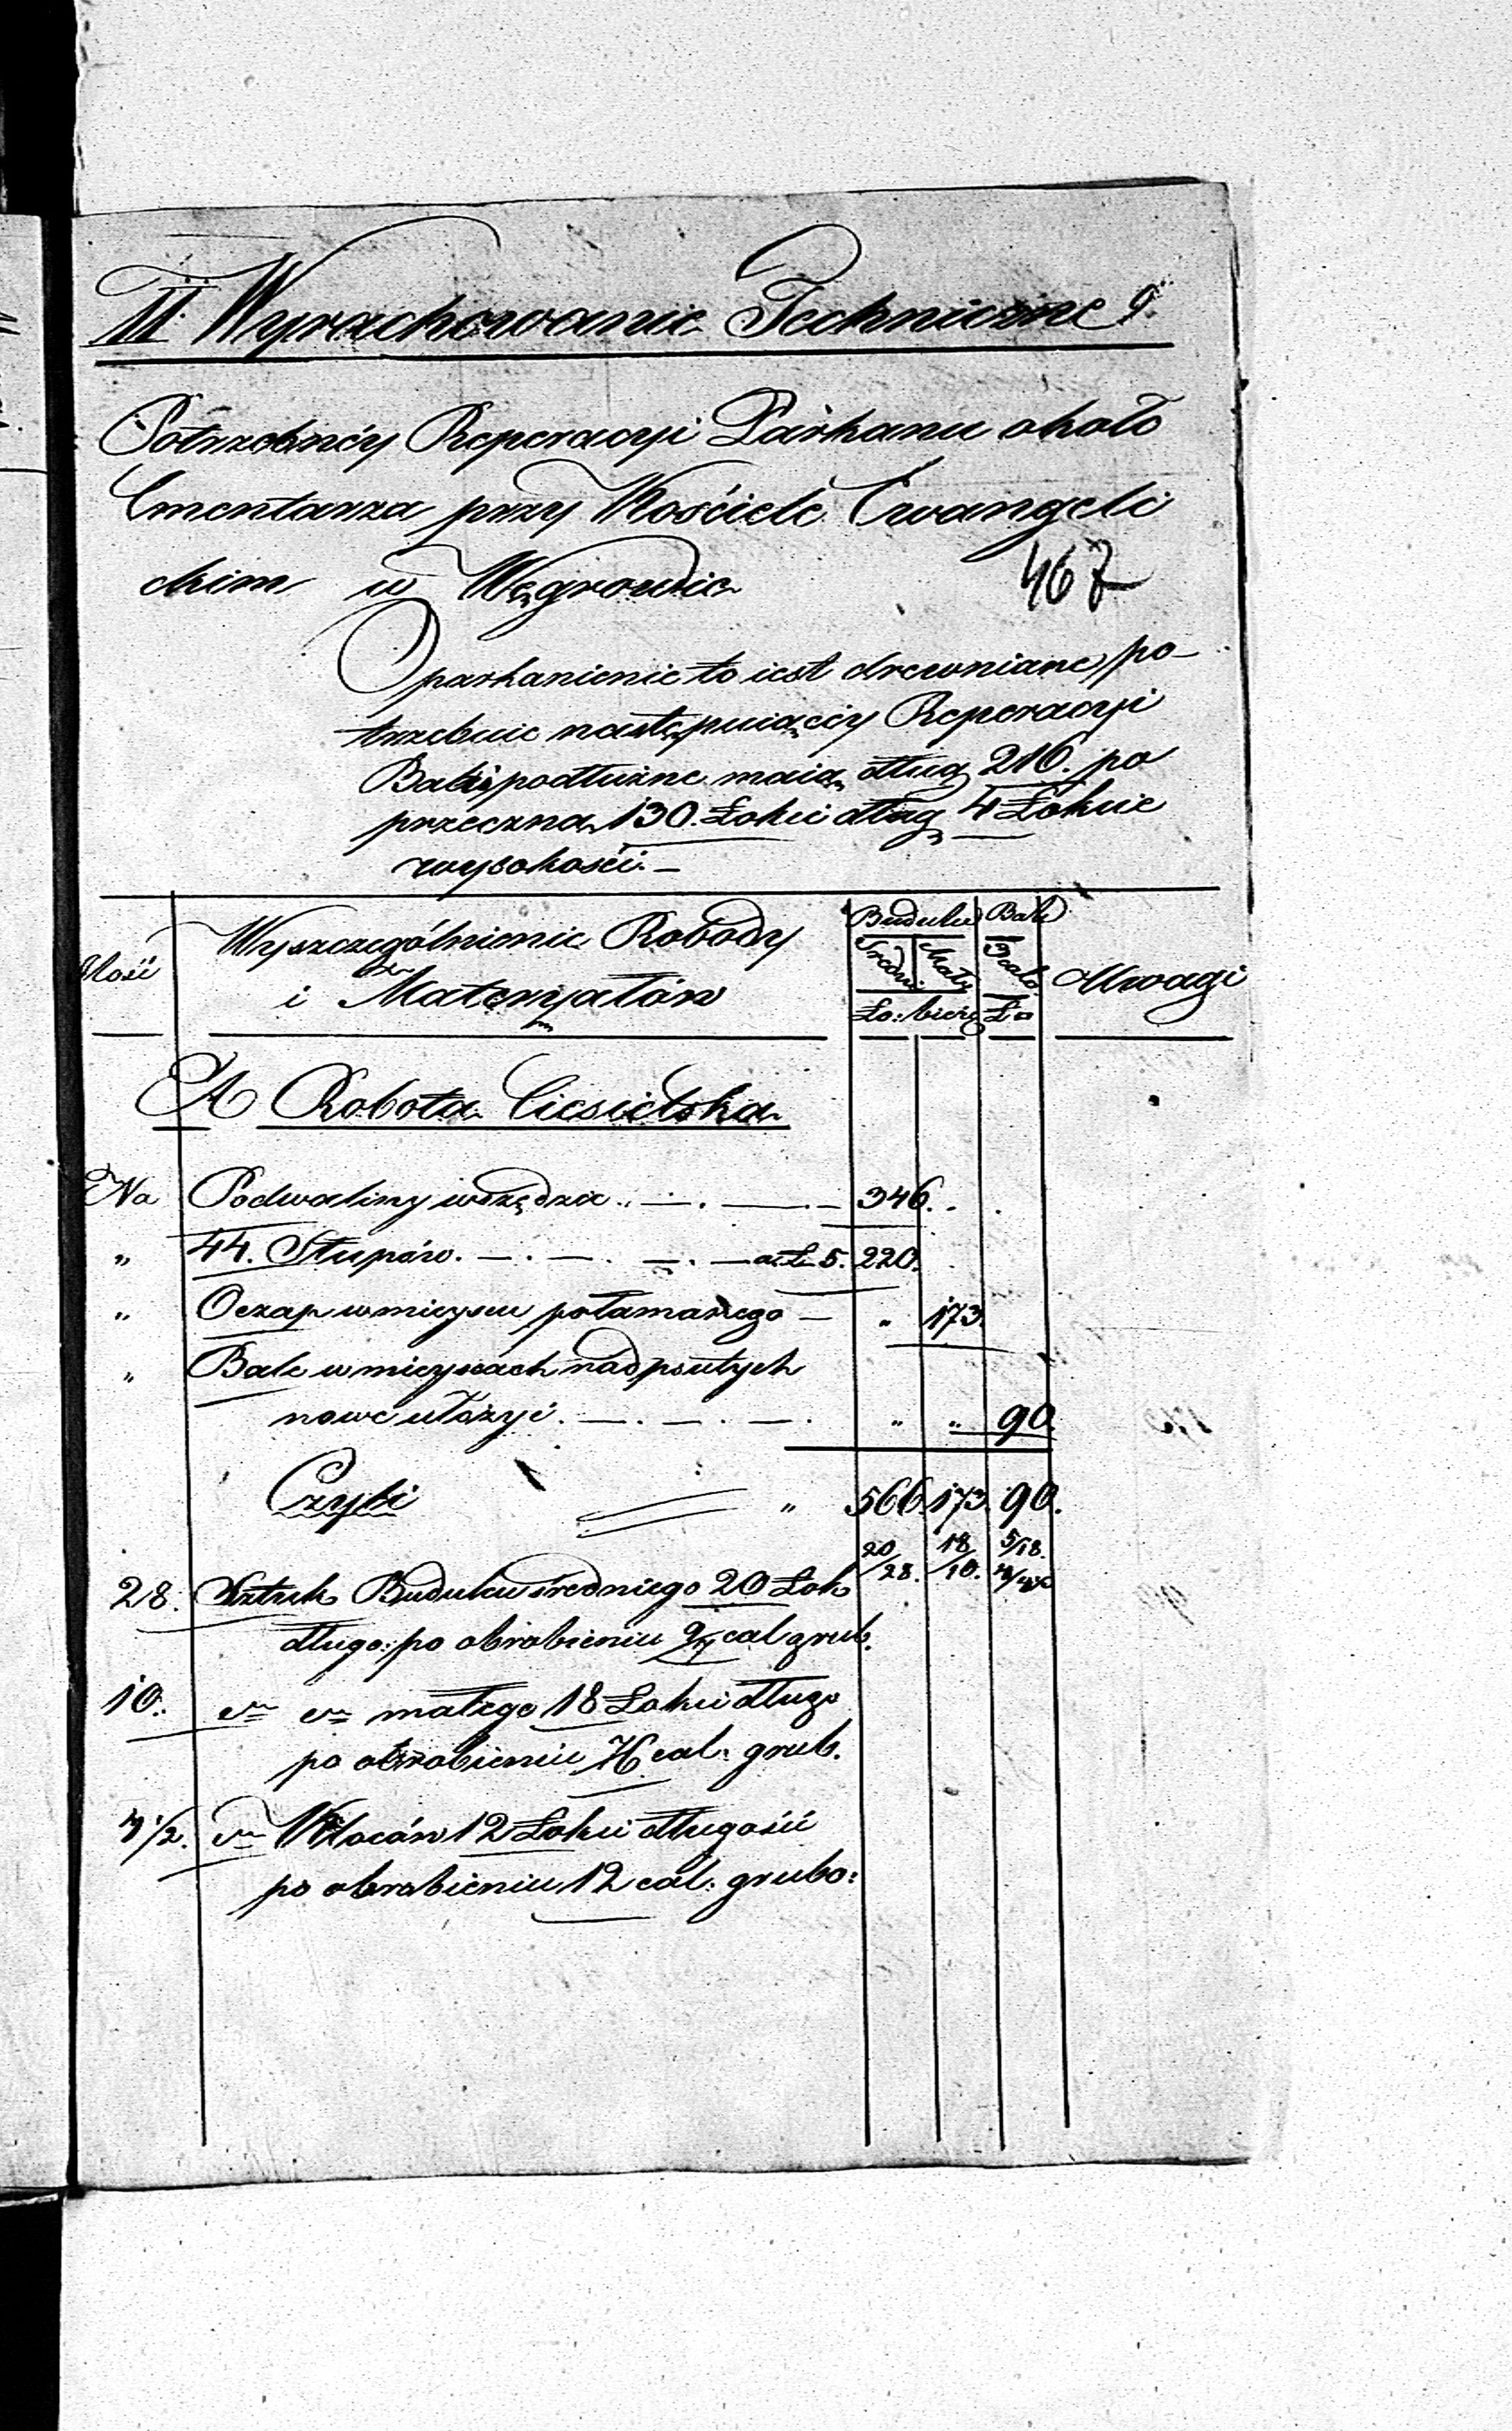 II Wyrachowanie Techniczne 9.
Potrzebnéy Reperacyi Parkanu około
Cmentarza przy Kościele Ewangeli
ckim w Węgrowie
467
Oparkanienie to iest drewniane, po-
trzebuie nastepuiącéy Reperacyi
podłużne maią dług 216. po
przeczna 130. Łokci dług 4 Łokcie
wysokości. —
Ilość Wyszczególnienie Robody i Materyałów Budulcu Bale Uwagi
Średni Mały 3 calo
Ło: bieżą Ł□
A Robota Ciesielska
Na Podwaliny wszędzie .. — . — . — 346. . .
„ 44. Słupów. — . — . — . — a Ł 5. 220. .
„ Oczap w mieyscu połamanego — „ 173.
„ Bale w mieyscach nadpsutych
nowe ułożyć. — . — . — . „ „ 90.
Czyli „ 566. 173. 90.
20/28. 18/10. 5/18.
28. Sztuk Budulcu średniego 20 Łok
długo: po obrobieniu cal grub.
10. małego 18 Łokci długo
po obrobieniu cal: grub.
4 1/2. Kloców 12 Łokci długości
po obrobieniu 12 cal: grubo: